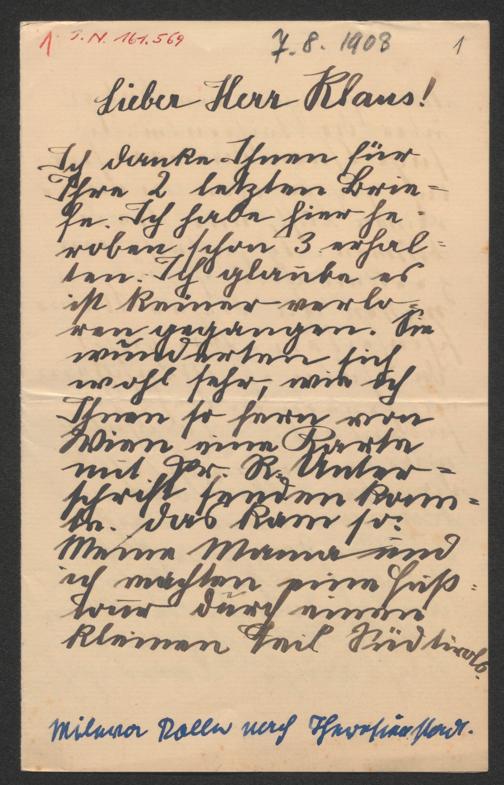 1 I.N. 161.569 7.8.1903 1
Lieber Herr Klaus!
Ich danke Ihnen für
Ihre 2 letzten Brie=
fe. Ich habe hier he=
roben schon 3 erhal=
ten. Ich glaube es
ist keiner verlo=
ren gegangen. Sie
wunderten sich
wohl sehr, wie ich
Ihnen so fern von
Wien eine Karte
mit Dr. R. Unter=
schrift senden konn=
te. Das kam so:
Meine Mama und
ich machten eine Fuß=
tour durch einen
kleinen Teil Südtirols.
Milewa Roller nach Theresienstadt.